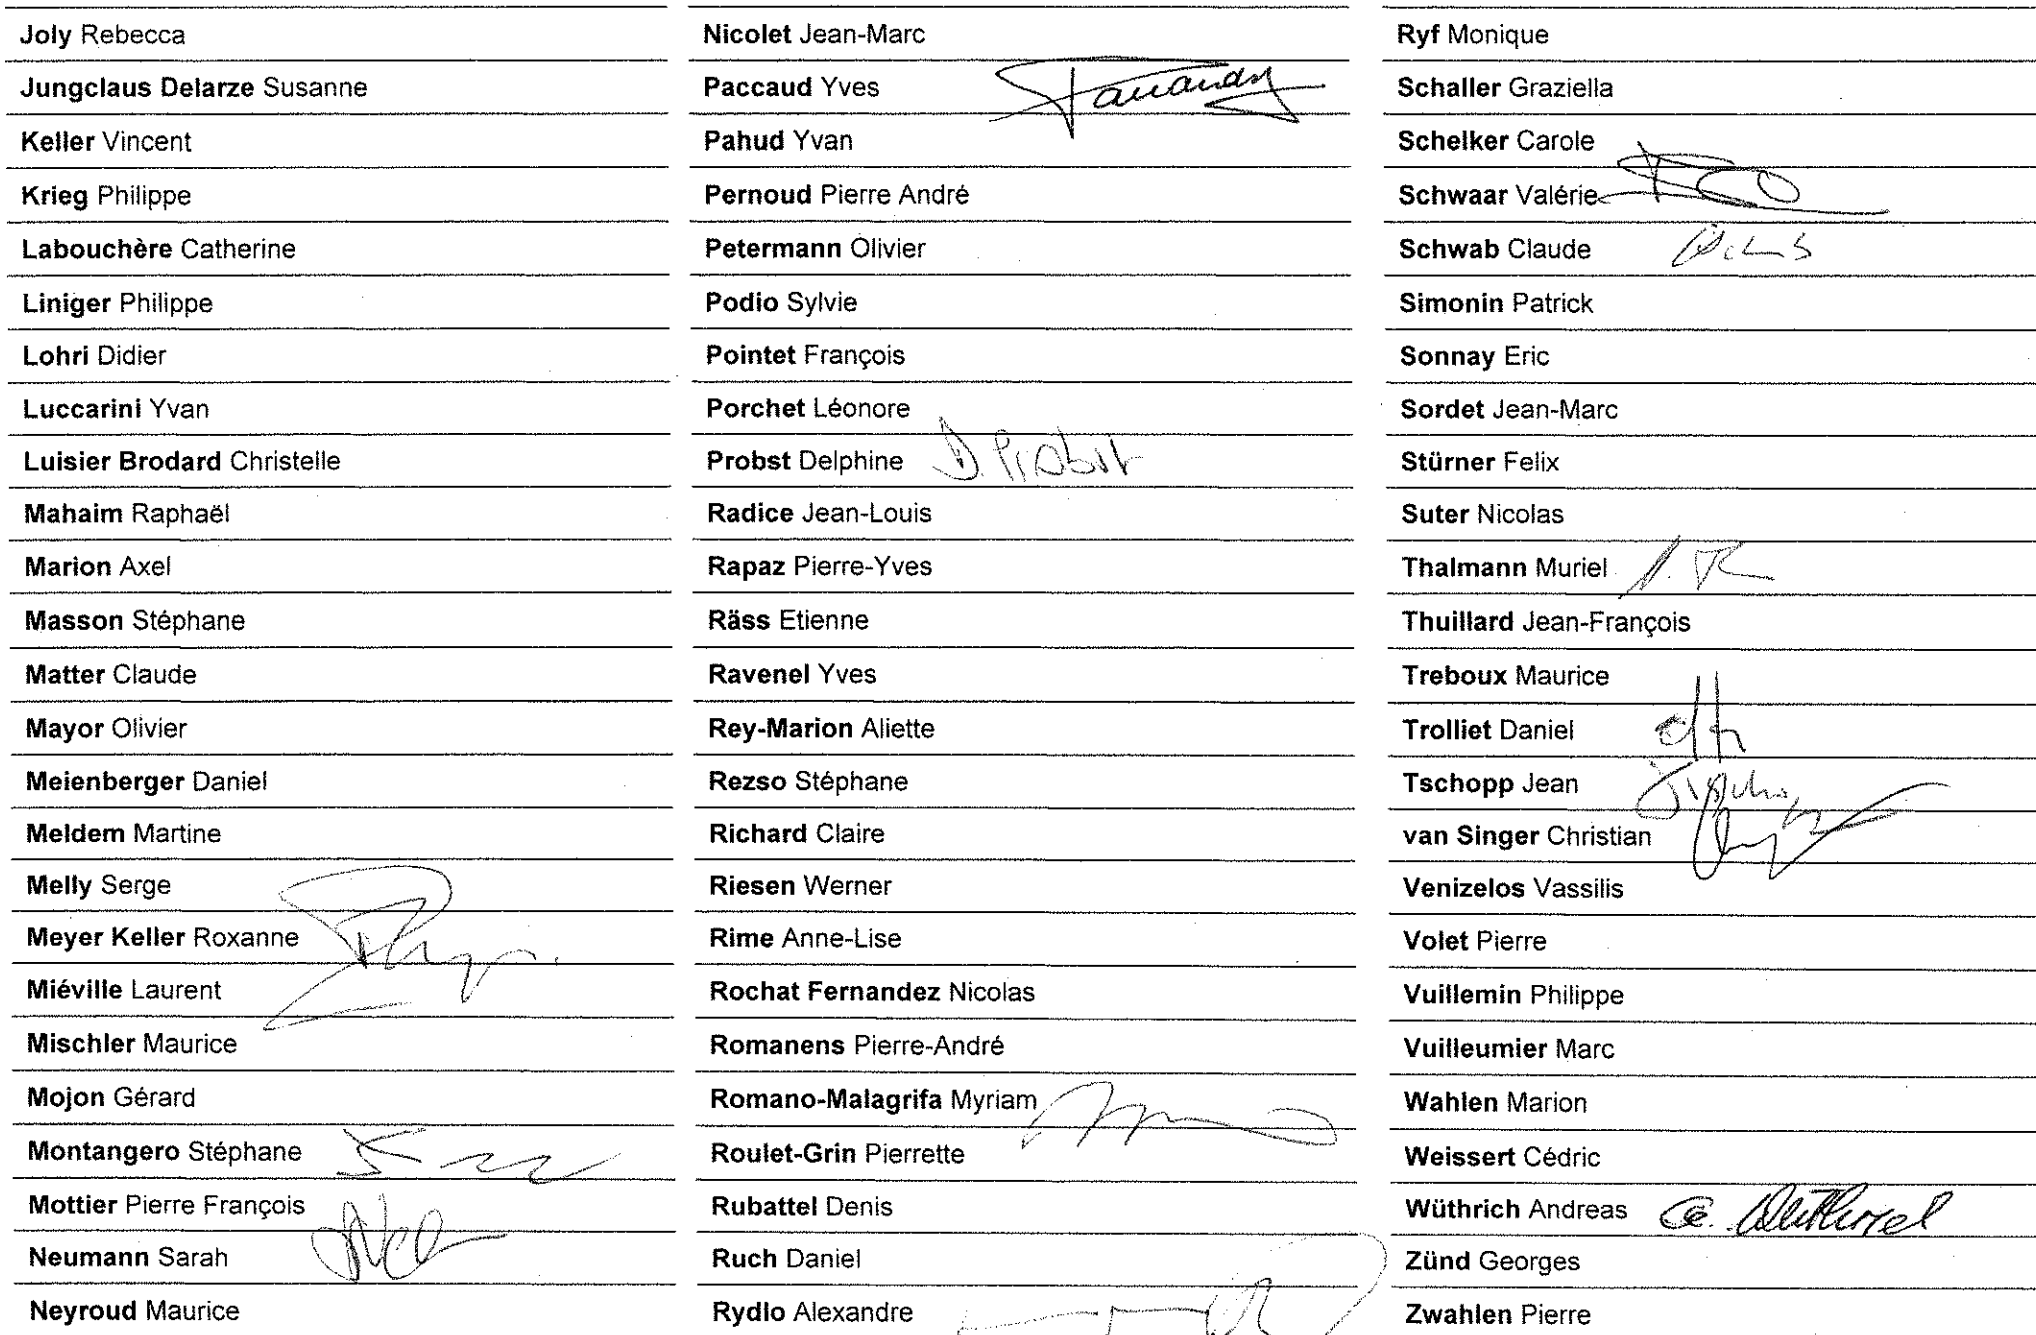 Joly Rebecca
Jungclaus Delarze Susanne
Keller Vincent
Krieg Philippe
Labouchère Catherine
Liniger Philippe
Lohri Didier
Luccarini Yvan
Luisier Brodard Christelle
Mahaim Raphaël
Marion Axel
Masson Stéphane
Matter Claude
Mayor Olivier
Meienberger Daniel
Meldem Martine
Melly Serge
Meyer Keller Roxanne
Miéville Laurent
Mischler Maurice
Mojon Gérard
Montangero Stéphane
Mottier Pierre François
Neumann Sarah
Neyroud Maurice
Nicolet Jean-Marc
Paccaud Yves
Pahud Yvan
Pernoud Pierre André
Petermann Olivier
Podio Sylvie
Pointet François
Porchet Léonore
Probst Delphine D. Probst
Radice Jean-Louis
Rapaz Pierre-Yves
Räss Etienne
Ravenel Yves
Rey-Marion Aliette
Rezso Stéphane
Richard Claire
Riesen Werner
Rime Anne-Lise
Rochat Fernandez Nicolas
Romanens Pierre-André
Romano-Malagrifa Myriam
Roulet-Grin Pierrette
Rubattel Denis
Ruch Daniel
Rydlo Alexandre
Ryf Monique
Schaller Graziella
Schelker Carole
Schwaar Valérie
Schwab Claude
Simonin Patrick
Sonnay Eric
Sordet Jean-Marc
Stürner Felix
Suter Nicolas
Thalmann Muriel
Thuillard Jean-François
Treboux Maurice
Trolliet Daniel
Tschopp Jean
van Singer Christian
Venizelos Vassilis
Volet Pierre
Vuillemin Philippe
Vuilleumier Marc
Wahlen Marion
Weissert Cédric
Wüthrich Andreas
Zünd Georges
Zwahlen Pierre